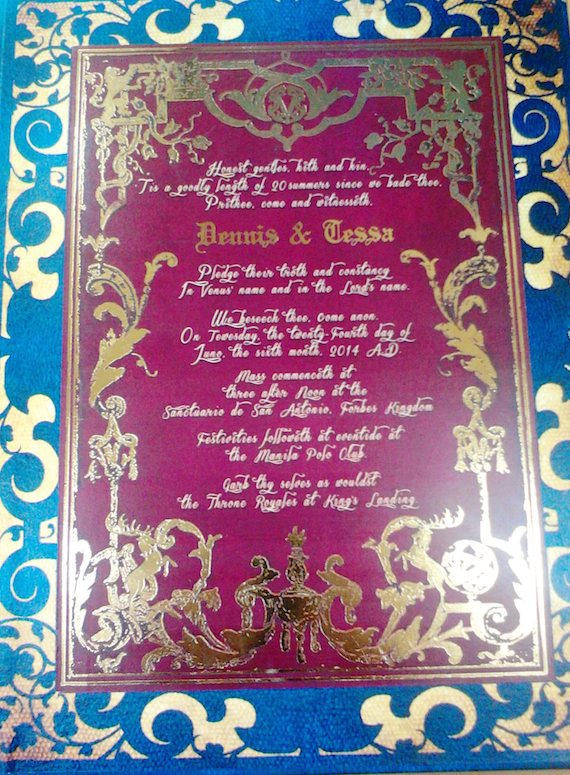 Honest gentles, kith and kin,
'Tis a goodly length of 20 summers since we bade thee,
Prithee, come and witnesseth,
Dennis & Tessa
Pledge their troth and constancy
In Venus' name and in the Lord's name.
We beseech thee, come anon,
On Tewesday, the twenty-Fourth day of
Iuno, the sixth month, 2014 A.D.
Mass commenceth at
three after Noon at the
Sanctuario de San Antonio, Forbes Kingdom
Festivities followeth at eventide at
the Manila Polo Club.
Garb thy selves as wouldst
the Throne Royales at King's Landing.